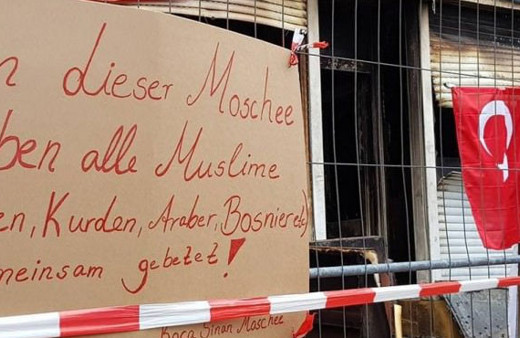 n dieser Moschee
ben alle Muslime
en, Kurden, Araber, Bosnier etc)
meinsam gebetet!
Koca Sinan Moschee